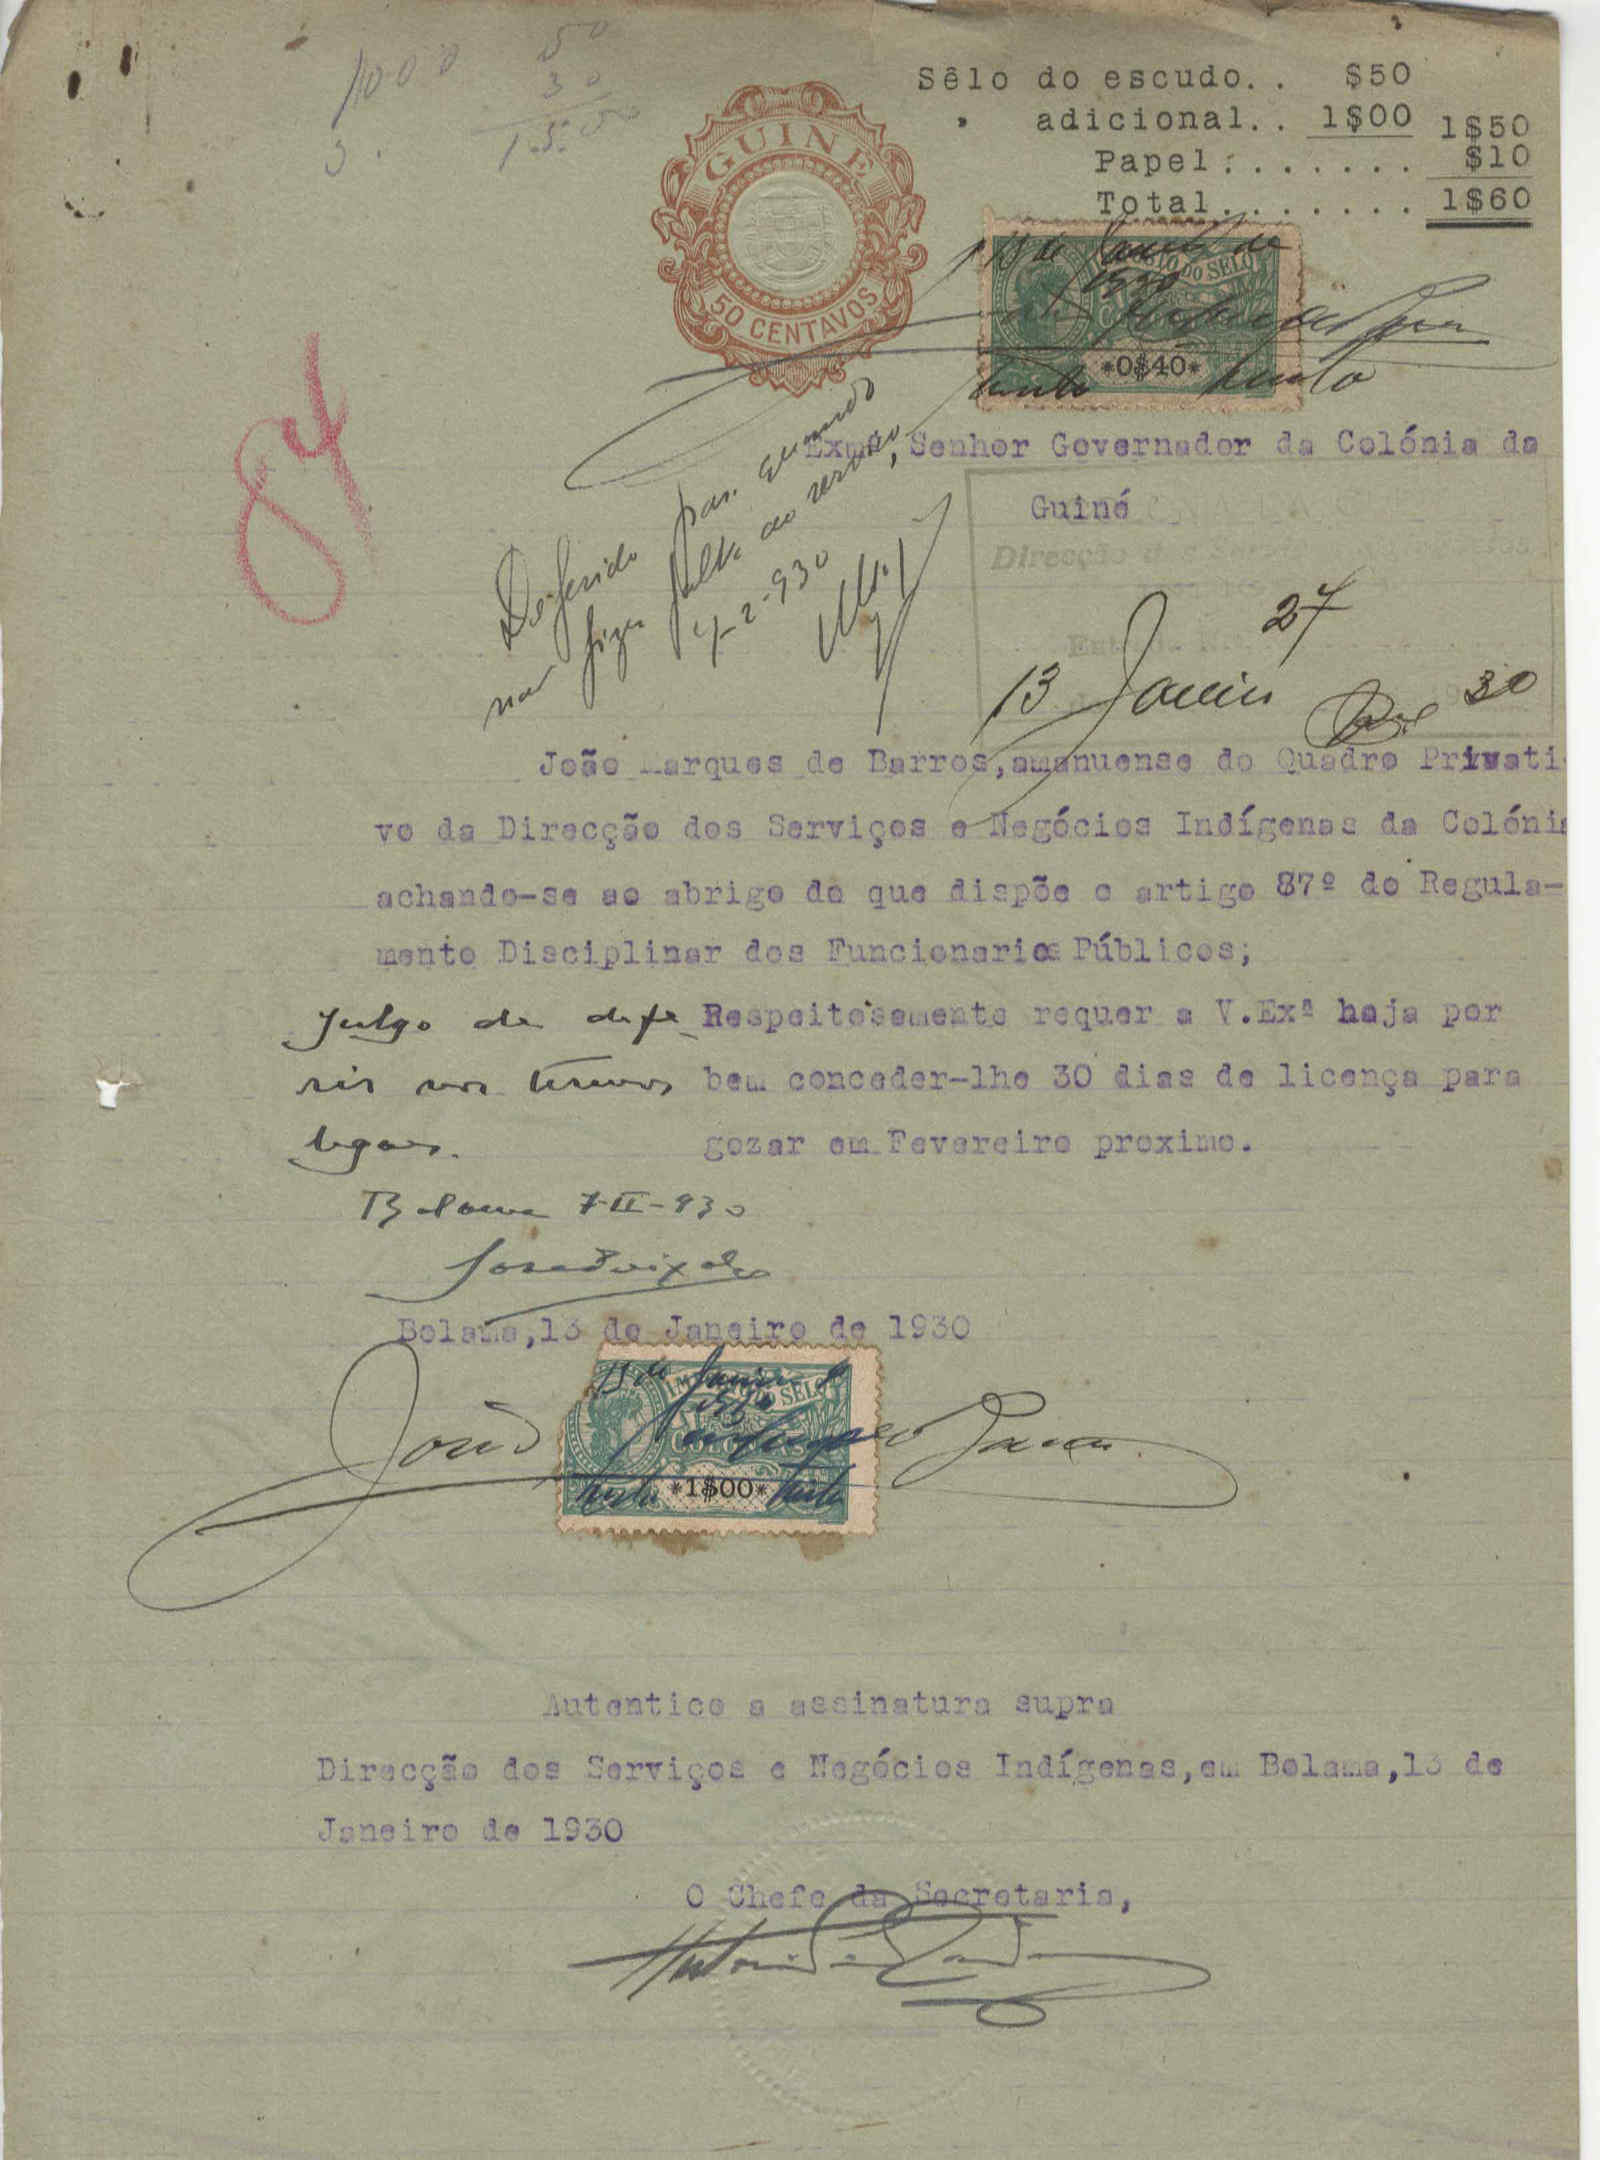 1000
3.
50
30
1.5.50
Sêlo do escudo.. $50
adicional.. 1$00 1$50
Papel:....... $10
Total....... 1$60
GUINÉ
50 CENTAVOS
13 de Janeiro de
1930
IMPOSTO DO SELO
*0$40*
84
Exmº Senhor Governador da Colónia da
Guiné
Deferido para quando
não fizer falta ao serviço,
7-2-930
Direcção d s Servi
27
13 Janeiro 30
João Marques de Barros,amanuense do Quadro Privati-
vo da Direcção dos Serviços e Negócios Indígenas da Colónia
achando-se ao abrigo do que dispõe o artigo 87º do Regula-
mento Disciplinar dos Funcionarios Públicos;
Respeitosamente requer a V.Exª haja por
bem conceder-lhe 30 dias de licença para
gozar em Fevereiro proximo.
Julgo de defe-
rir nos termos
legaes.
Bolama 7-II-930
Bolama,13 de Janeiro de 1930
13 de Janeiro de
1930
IMPOSTO DO SELO
COLONIAS
*1$00*
João Marques de Barros
Autentico a assinatura supra
Direcção dos Serviços e Negócios Indígenas,em Bolama,13 de
Janeiro de 1930
O Chefe da Secretaria,